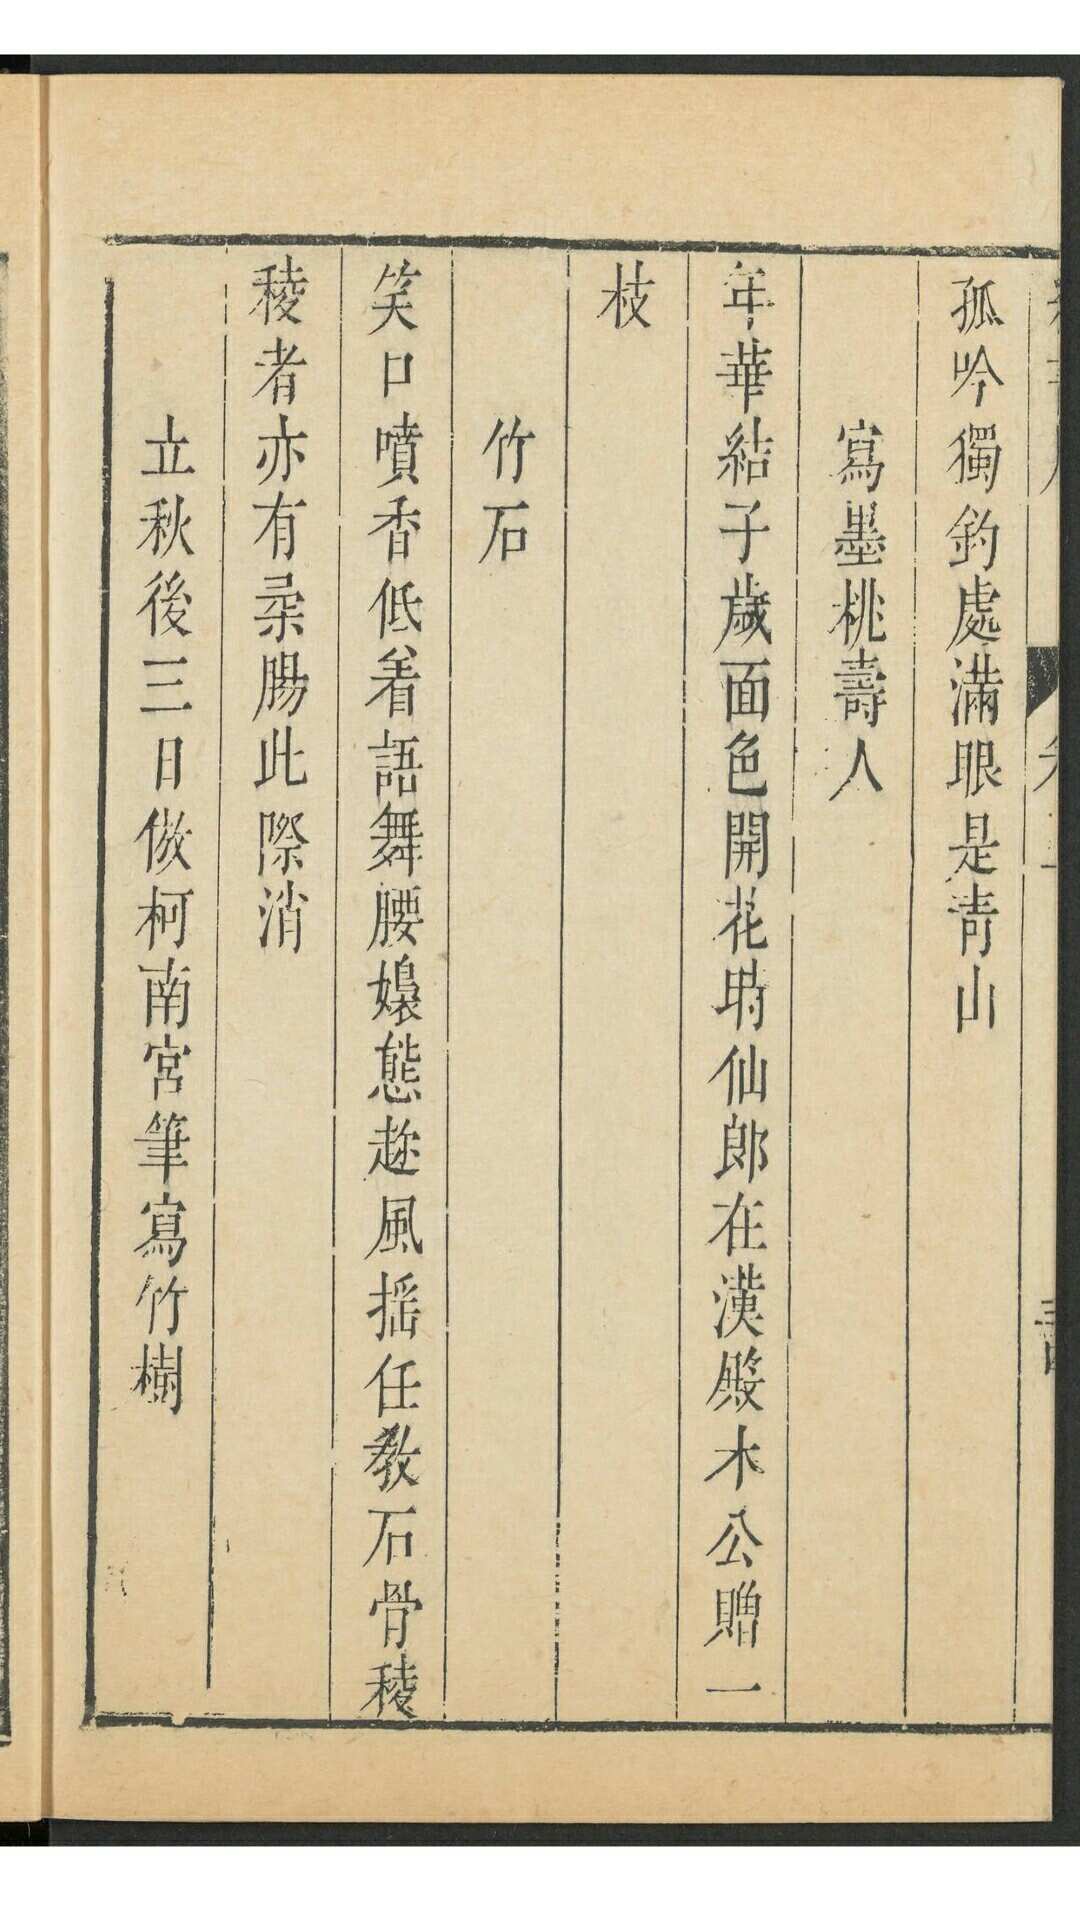 孤吟獨釣處滿眼是靑山
寫墨桃壽人
年華結子歲面色開花時仙郎在漢殿木公贈一
枝
竹石
笑口噴香低着語舞腰嬝態趂風搖任教石骨稜
稜者亦有柔腸此際消
立秋後三日倣柯南宮筆寫竹樹